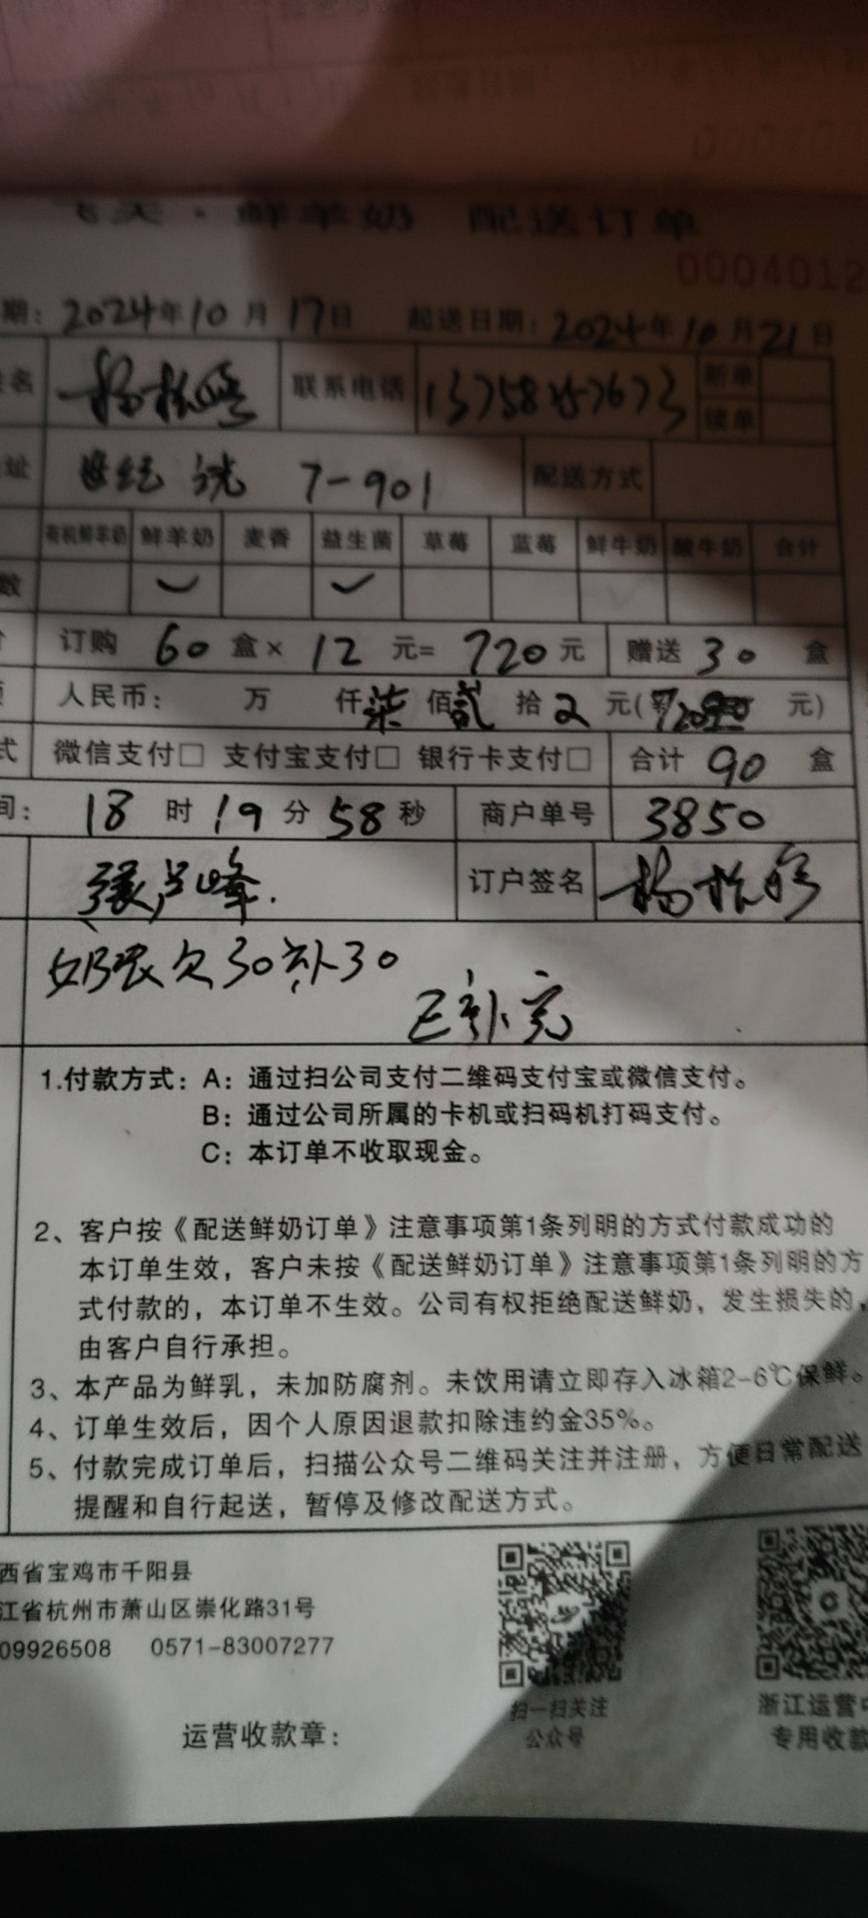 鲜羊奶 配送订单
0004012
期：2024年10月17日 起送日期：2024年10月21日
名 联系电话 13758157673 新单
续单
址 世纪 7-901 配送方式
有机鲜羊奶 鲜羊奶 麦香 益生菌 草莓 蓝莓 鲜牛奶 酸牛奶 合计
数
订购 60 盒× 12 元= 720 元 赠送 30 盒
人民币： 万 仟 柒 佰 贰 拾 元( 元)
式 微信支付□ 支付宝支付□ 银行卡支付□ 合计 90 盒
间： 18 时 19 分 58 秒 商户单号 3850
峰 订户签名 杨
奶农欠30补30
已补充
1.付款方式：A：通过扫公司支付二维码支付宝或微信支付。
B：通过公司所属的卡机或扫码机打码支付。
C：本订单不收取现金。
2、客户按《配送鲜奶订单》注意事项第1条列明的方式付款成功的
本订单生效，客户未按《配送鲜奶订单》注意事项第1条列明的方
式付款的，本订单不生效。公司有权拒绝配送鲜奶，发生损失的，
由客户自行承担。
3、本产品为鲜乳，未加防腐剂。未饮用请立即存入冰箱2-6℃保鲜。
4、订单生效后，因个人原因退款扣除违约金35%。
5、付款完成订单后，扫描公众号二维码关注并注册，方便日常配送
提醒和自行起送，暂停及修改配送方式。
西省宝鸡市千阳县
江省杭州市萧山区崇化路31号
09926508 0571-83007277
扫一扫关注
公众号
浙江运营中
专用收款
运营收款章：